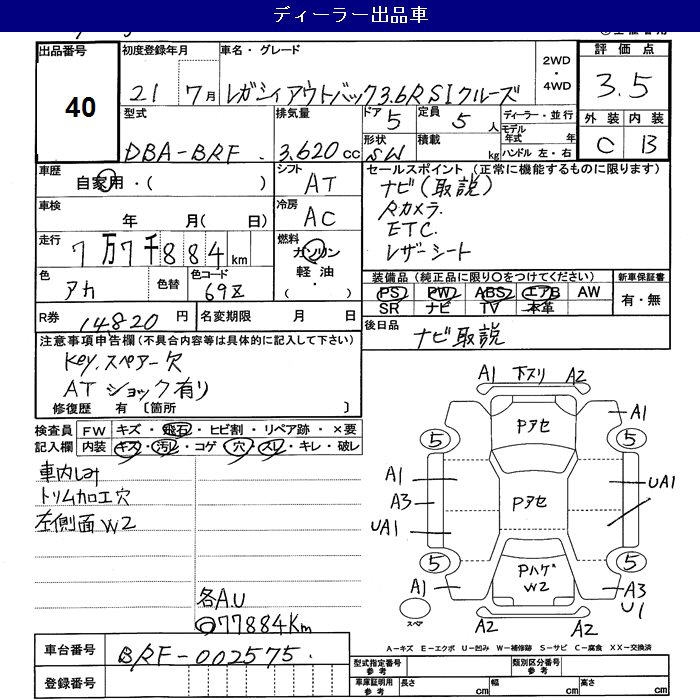 ディーラー出品車
出品番号 初度登録年月 車名・グレード 2WD ・ 4WD 評価点
40 21 7月 レガシィアウトバック3.6R SIクルーズ 3.5
型式 排気量 ドア 5 定員 5人 ディーラー・並行 外装 内装
DBA-BRF 3.620cc 形状 SW 積載 kg モデル年式 年 C B
ハンドル 左・右
車歴 シフト セールスポイント(正常に機能するものに限ります)
自家用・( ) AT ナビ(取説)
車検 冷房 Rカメラ
年 月( 日) AC ETC.
走行 燃料 レザーシート
7万7千884km ガソリン
軽油
・( )
色 色替 色コード 装備品(純正品に限り○をつけてください) 新車保証書
アカ 69Z PS PW ABS エアB AW 有・無
SR ナビ TV 本革
R券 14820円 名変期限 月 日 後日品 ナビ取説
注意事項申告欄(不具合内容等は具体的に記入して下さい)
Key.スペアー欠
ATショック有り
修復歴 有〔箇所 〕
検査員 FW キズ・飛石・ヒビ割・リペア跡・×要
記入欄 内装 キズ・汚レ・コゲ・穴・スレ・キレ・破レ
車内しみ
トリム加工穴
左側面W2
各A.U
77884Km
A1 下スリ A2
Pアセ A1
5 5
A1 UA1
A3 Pアセ
UA1
5 PハゲW2 5
A1 A3
U1
スペア A2 A2
A-キズ E-エクボ U-凹み W-補修跡 S-サビ C-腐食 XX-交換済
車台番号 BRF-002575. 型式指定番号 参考 類別区分番号 参考
登録番号 車庫証明用 参考 長さ cm 幅 cm 高さ cm